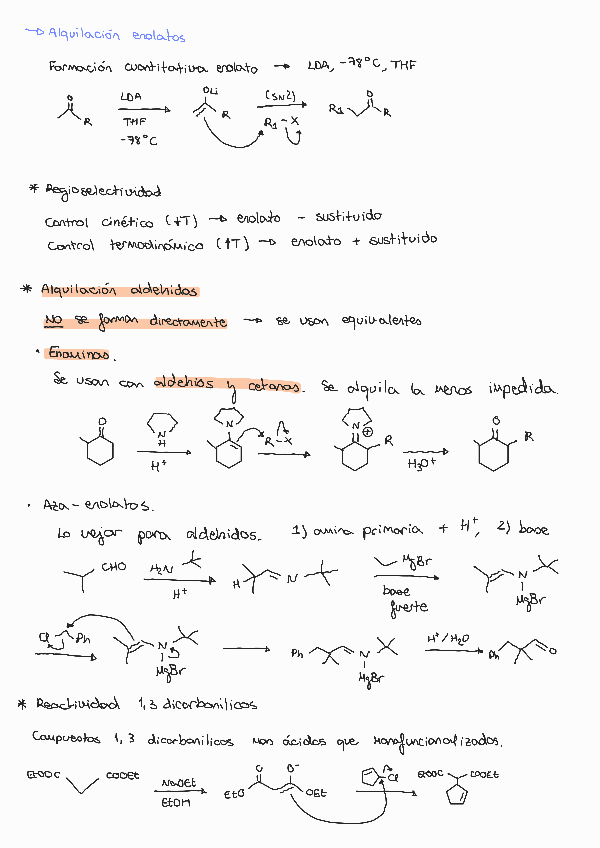 → Alquilación enolatos
Formación cuantitativa enolato → LDA, -78°C, THF
O R LDA THF -78°C OLi R (SN2) R1-X R1 O R
* Regioselectividad
Control cinético (↓T) → enolato - sustituido
Control termodinámico (↑T) → enolato + sustituido
* Alquilación aldehidos
NO se forman directamente → se usan equivalentes
· Enaminas.
Se usan con aldehios y cetonas. Se alquila la menos impedida.
O N H H+ N R-X N ⊕ R H3O+ O R
· Aza-enolatos.
Lo mejor para aldehidos. 1) amina primaria + H+, 2) base
CHO H2N H+ H N MgBr base fuerte N MgBr
Cl Ph N MgBr Ph N MgBr H+/H2O Ph O
* Reactividad 1,3 dicarbonilicos
Compuestos 1,3 dicarbonilicos más ácidos que monofuncionalizados.
EtOOC COOEt NaOEt EtOH EtO O O- OEt Cl EtOOC COOEt